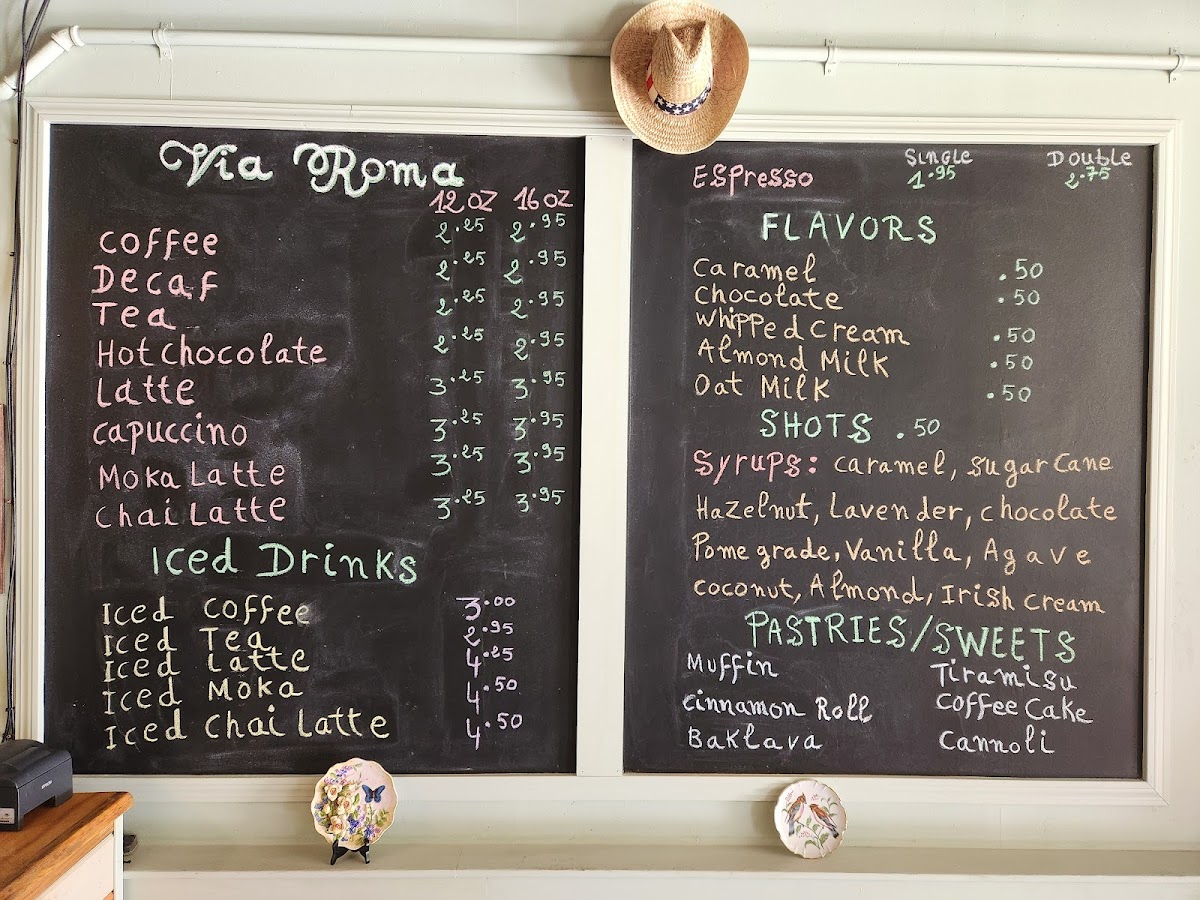 Via Roma
12 oz 16 oz
Coffee 2.25 2.95
Decaf 2.25 2.95
Tea 2.25 2.95
Hot chocolate 2.25 2.95
Latte 3.25 3.95
Capuccino 3.25 3.95
Moka Latte 3.25 3.95
Chai Latte 3.25 3.95
Iced Drinks
Iced Coffee 3.00
Iced Tea 2.95
Iced Latte 4.25
Iced Moka 4.50
Iced Chai Latte 4.50
Single Double
Espresso 1.95 2.75
FLAVORS
Caramel .50
Chocolate .50
Whipped Cream .50
Almond Milk .50
Oat Milk .50
SHOTS .50
Syrups: Caramel, Sugar Cane
Hazelnut, Lavender, chocolate
Pomegrade, Vanilla, Agave
coconut, Almond, Irish Cream
PASTRIES/SWEETS
Muffin Tiramisu
Cinnamon Roll Coffee Cake
Baklava Cannoli